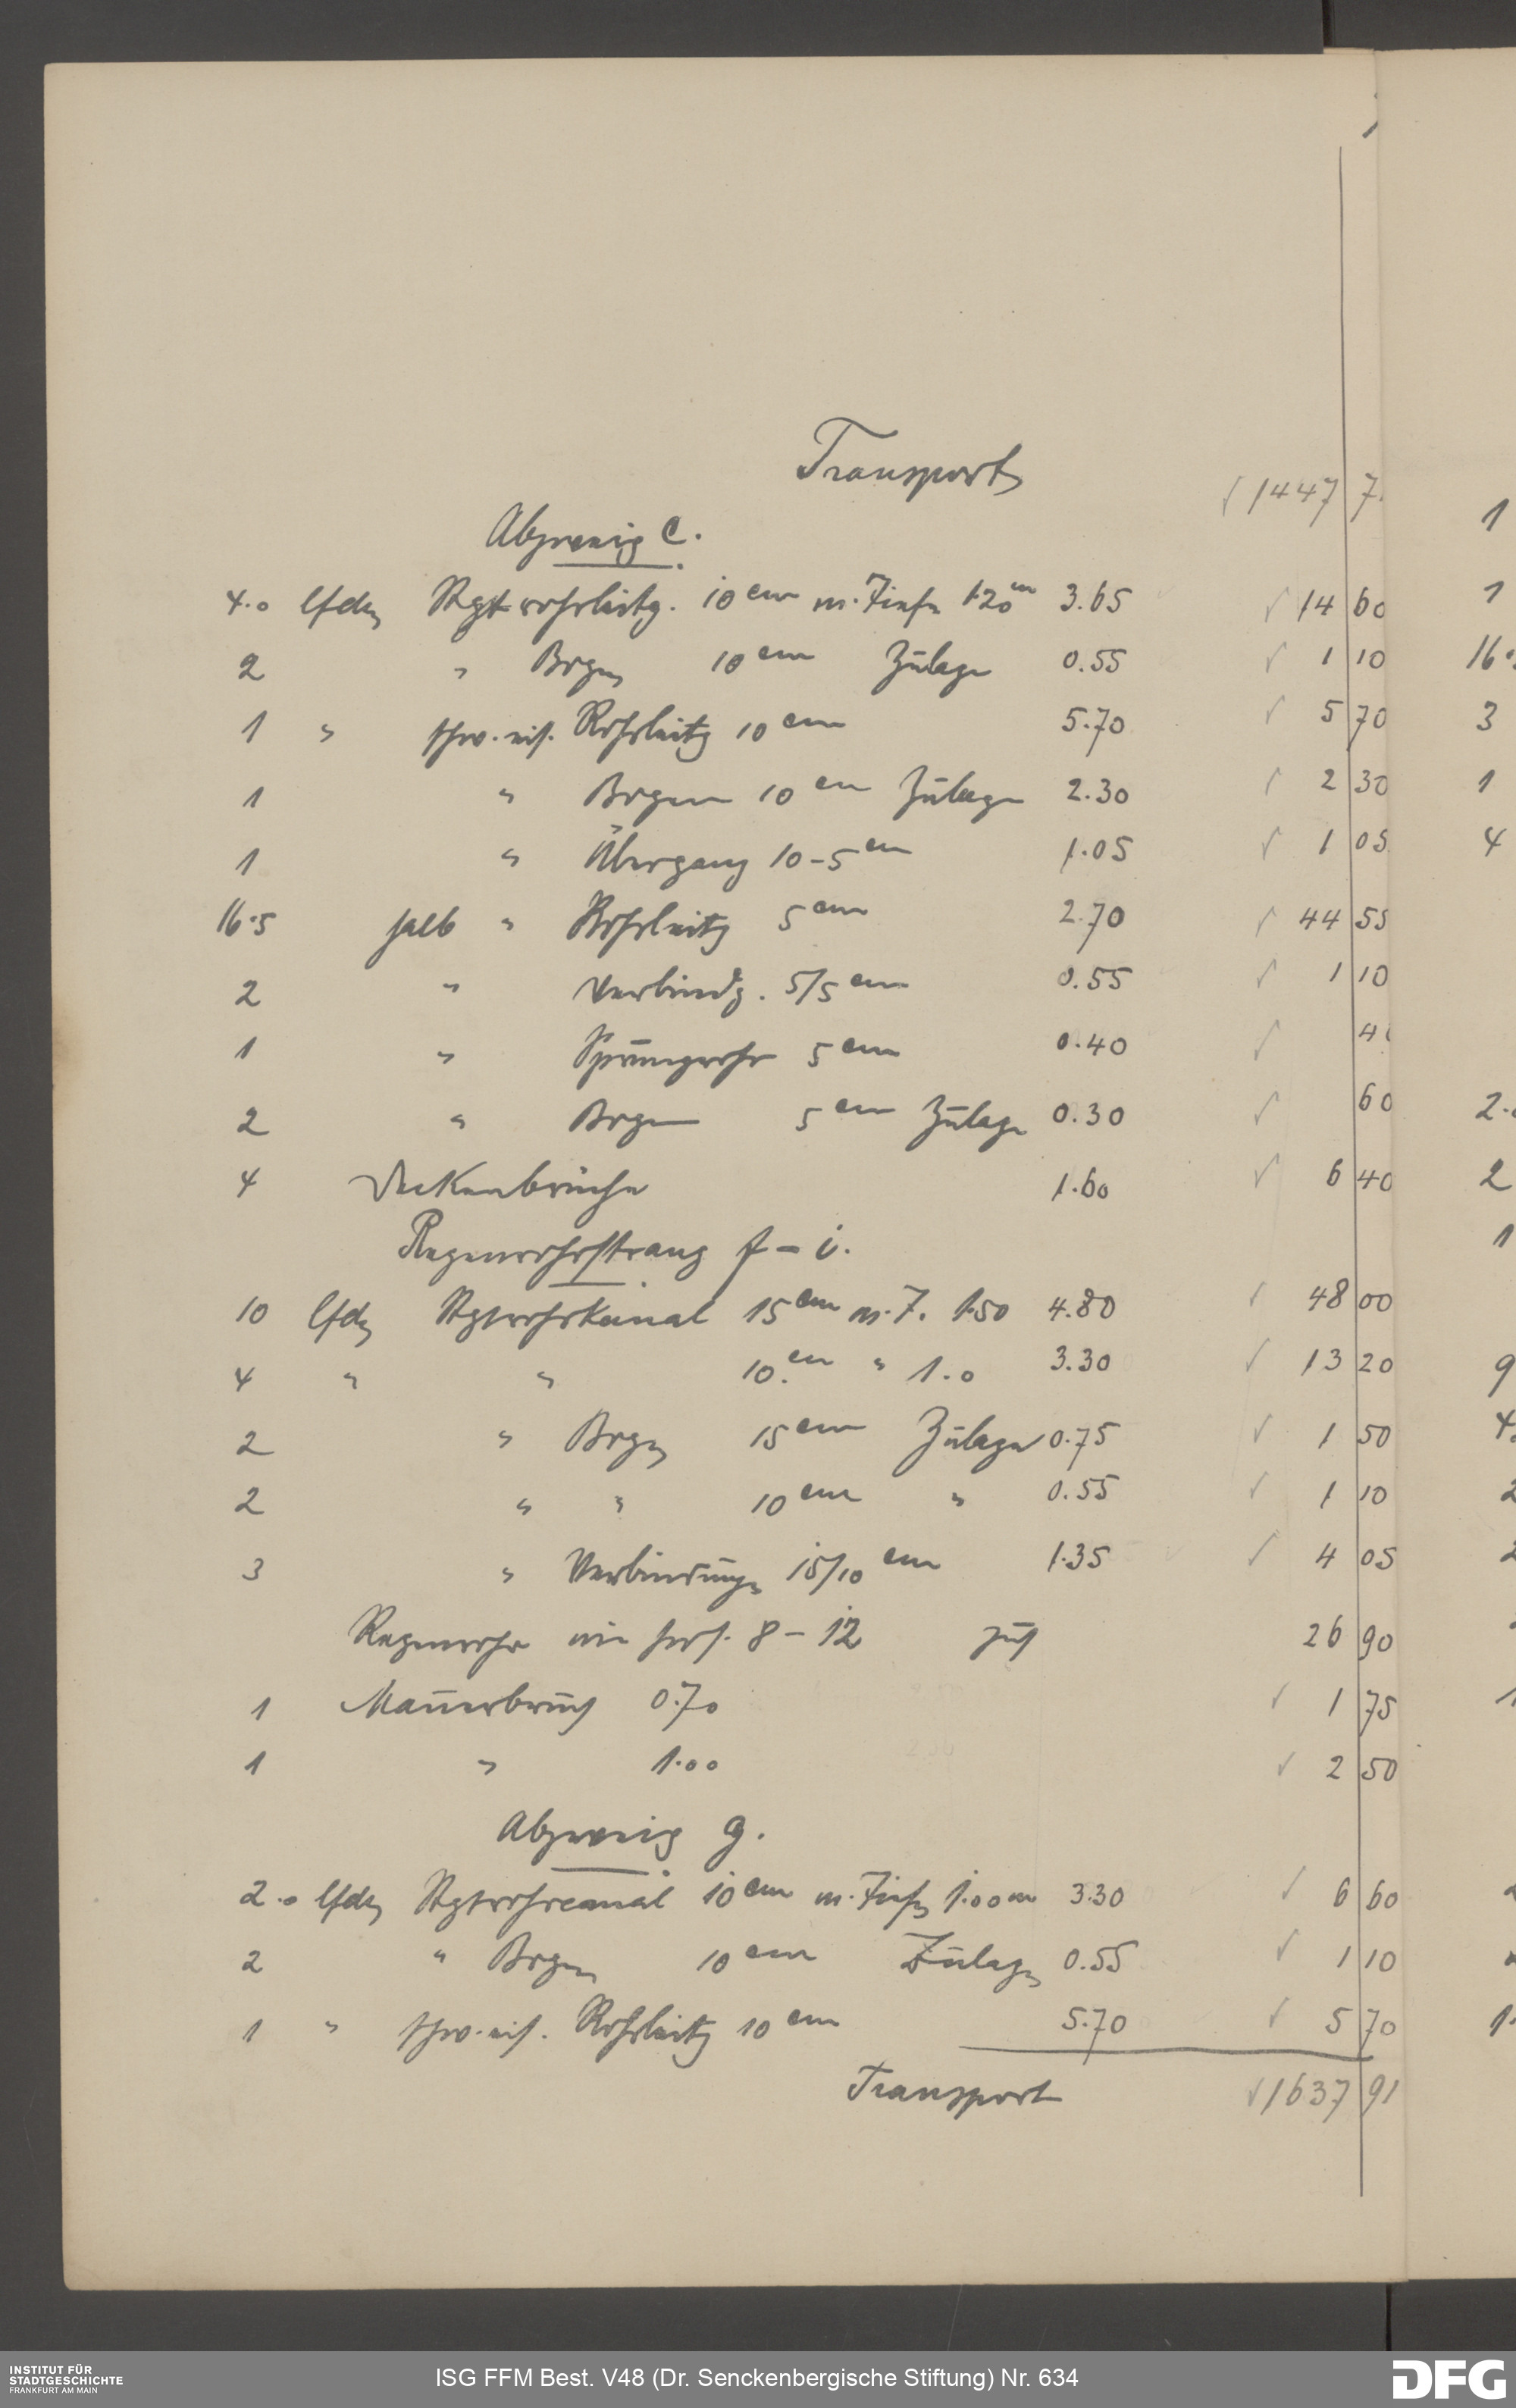 Transport 1447 7
Abzweig C.
4.0 lfde Stgtrohrleitg. 10 cm m. Tiefe 1.20 m 3.65 14 60
2 " Bogen 10 cm Zulage 0.55 1 10
1 " schw. eis. Rohrleitg 10 cm 5.70 5 70
1 " Bogen 10 cm Zulage 2.30 2 30
1 " Übergang 10-5 cm 1.05 1 05
16.5 halb " Rohrleitg 5 cm 2.70 44 55
2 " Verbindg. 5/5 cm 0.55 1 10
1 " Sprungrohr 5 cm 0.40 4
2 " Bogen 5 cm Zulage 0.30 60
4 Deckenbrüche 1.60 6 40
Regenrohrstrang f - i.
10 lfde Stgtrohrkanal 15 cm m. T. 1.50 4.80 48 00
4 " " 10 cm " 1.0 3.30 13 20
2 " Bogen 15 cm Zulage 0.75 1 50
2 " " 10 cm " 0.55 1 10
3 " Verbindunge 15/10 cm 1.35 4 05
Regenrohr wie Pos. 8 - 12 26 90
1 Mauerbruch 0.70 1 75
1 " 1.00 2 50
Abzweig g.
2.0 lfde Stgtrohrcanal 10 cm m. Tiefe 1.00 m 3.30 6 60
2 " Bogen 10 cm Zulage 0.55 1 10
1 " schw. eis. Rohrleitg 10 cm 5.70 5 70
Transport 1637 91
1
1
16.
3
1
4
2.
2
1
9
4
2
INSTITUT FÜR
STADTGESCHICHTE
FRANKFURT AM MAIN
ISG FFM Best. V48 (Dr. Senckenbergische Stiftung) Nr. 634
DFG